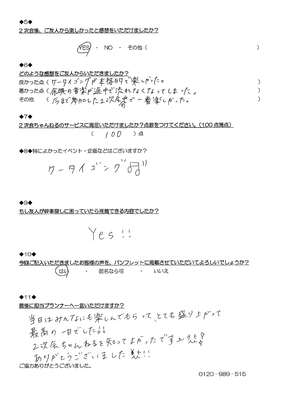 ◆5◆
2次会後、ご友人から楽しかったと感想をいただけましたか？
YES ・ NO ・ その他（ ）
◆6◆
どのような感想をご友人からいただきましたか？
良かった点（ケータイゴングが本格的で楽しかった。）
悪かった点（余興の音楽が途中で流れなくなってしまった。）
その他 （今まで参加した2次会で一番楽しかった。）
◆7◆
2次会ちゃんねるのサービスに満足いただけましたか？点数をつけてください。（100点満点）
（ 100 ）点
◆8◆特によかったイベント・企画などはございますか？
ケータイゴング
◆9◆
もし友人が幹事探しに困っていたら推薦できる内容でしたか？
Yes!!
◆10◆
今回ご記入いただきましたお客様の声を、パンフレットに掲載させていただいてよろしいでしょうか？
はい ・ 匿名なら可 ・ いいえ
◆11◆
最後に担当プランナーへ一言いただけますか？
当日はみんなにも楽しんでもらって、とても盛り上がって
最高の一日でした!!
2次会ちゃんねるを知ってよかったです
ありがとうございました
ご協力ありがとうございました。
0120-989-515